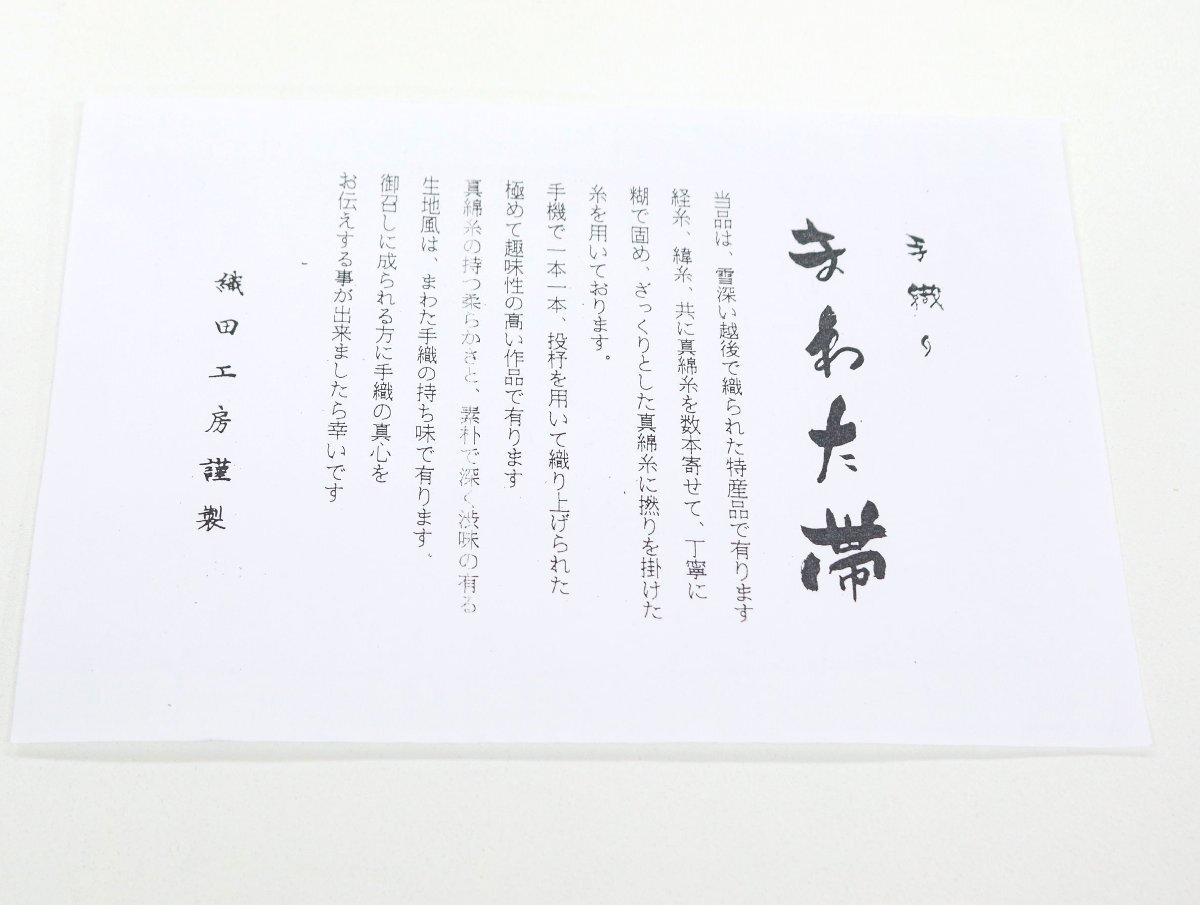 手織り
まわた帯
当品は、雪深い越後で織られた特産品で有ります
経糸、緯糸、共に真綿糸を数本寄せて、丁寧に
糊で固め、ざっくりとした真綿糸に撚りを掛けた
糸を用いております。
手機で一本一本、投杼を用いて織り上げられた
極めて趣味性の高い作品で有ります
真綿糸の持つ柔らかさと、素朴で深く渋味の有る
生地風は、まわた手織の持ち味で有ります。
御召しに成られる方に手織の真心を
お伝えする事が出来ましたら幸いです
織田工房謹製